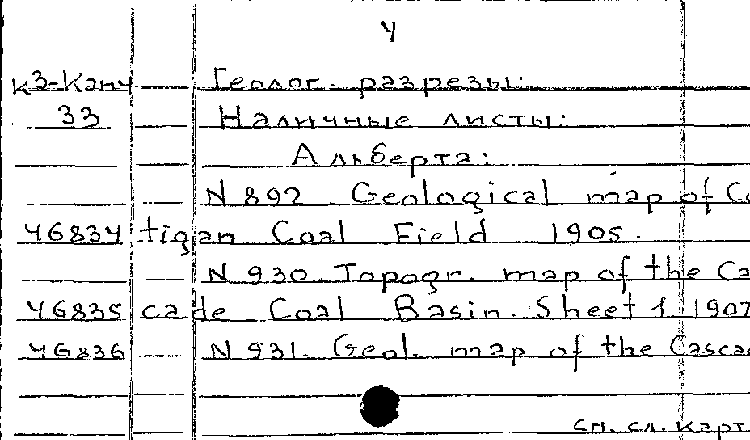 4
К3-Кан4 Геолог. разрезы:
33 Наличные листы:
Альберта:
N 892 Geological map of Co
46834 tigan Coal Field 1905.
N 930 Topogr. map of the Ca
46835 cade Coal Basin. Sheet 1 1907
46836 N 931. Geol. map of the Casca
см. сл. карт